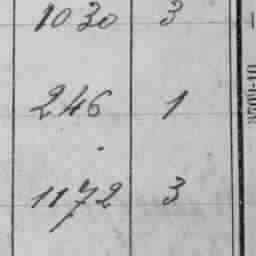 1030 3
246 1
1172 3